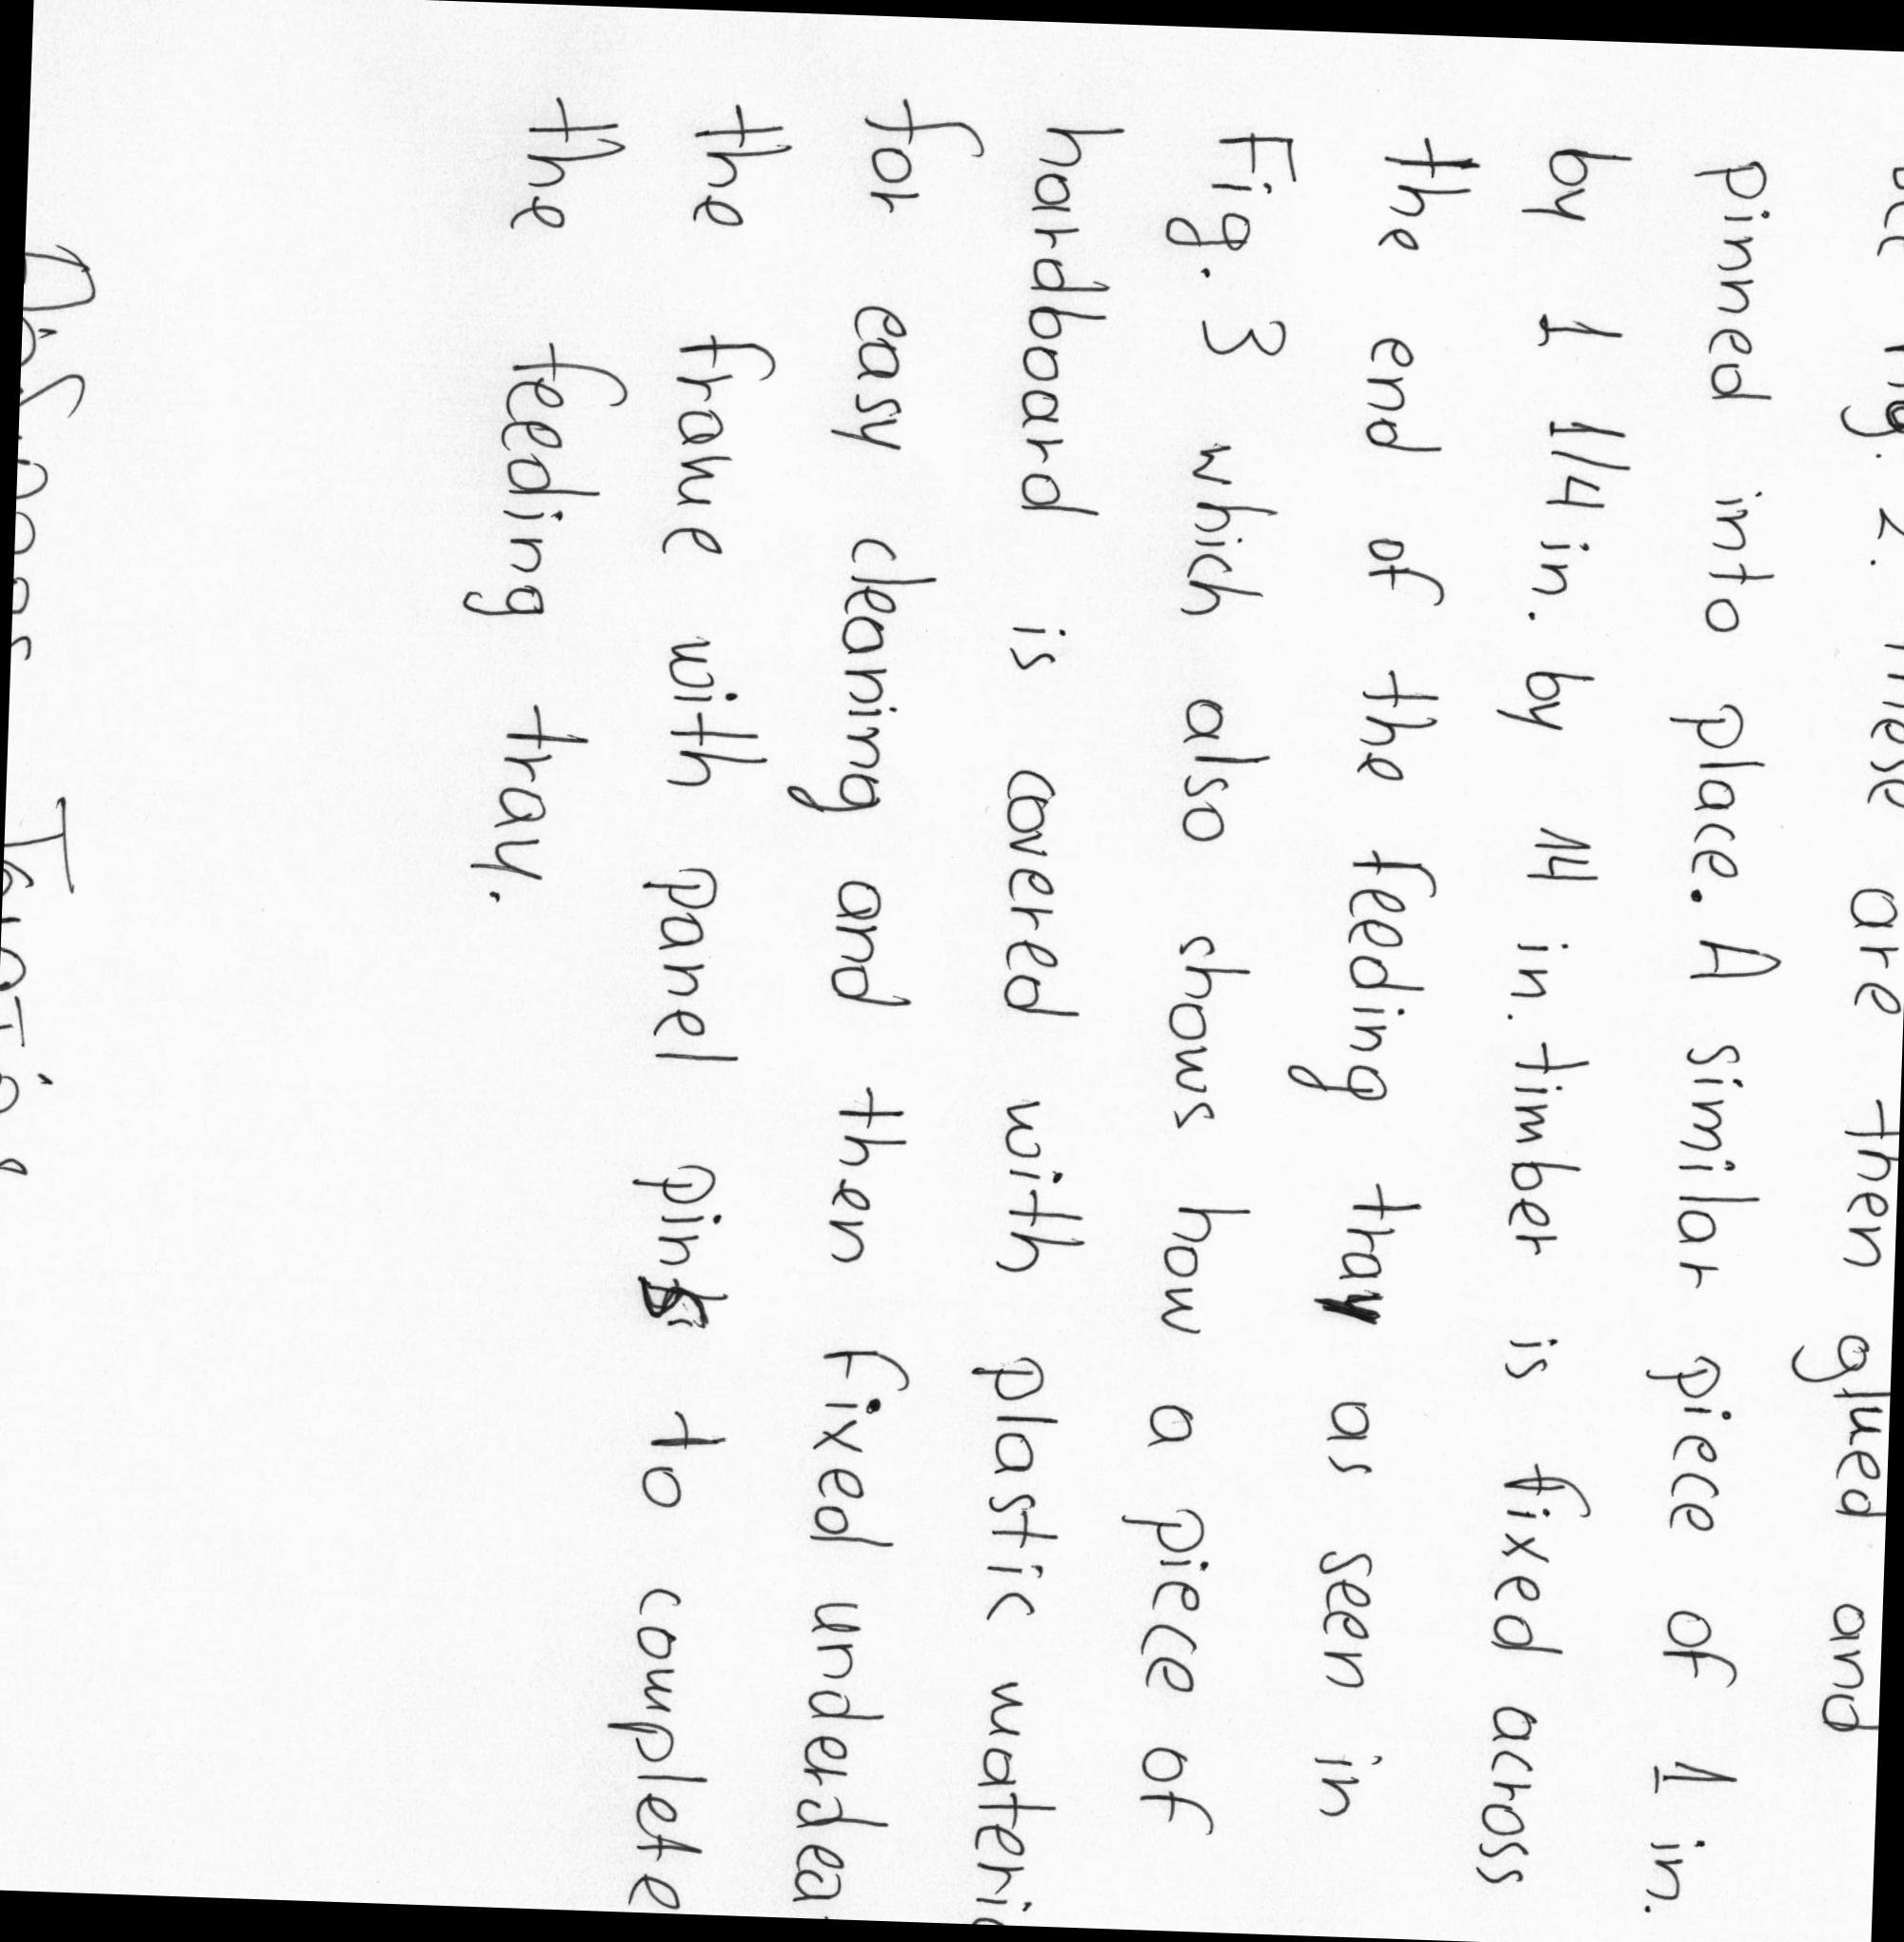 Fig. 2. These are then glued and
pinned into place. A similar piece of 1 in.
by 1 1/4 in. by 14 in. timber is fixed across
the end of the feeding tray as seen in
Fig. 3 which also shows how a piece of
hardboard is covered with plastic materi
for easy cleaning and then fixed undernea
the frame with panel pins to complete
the feeding tray.